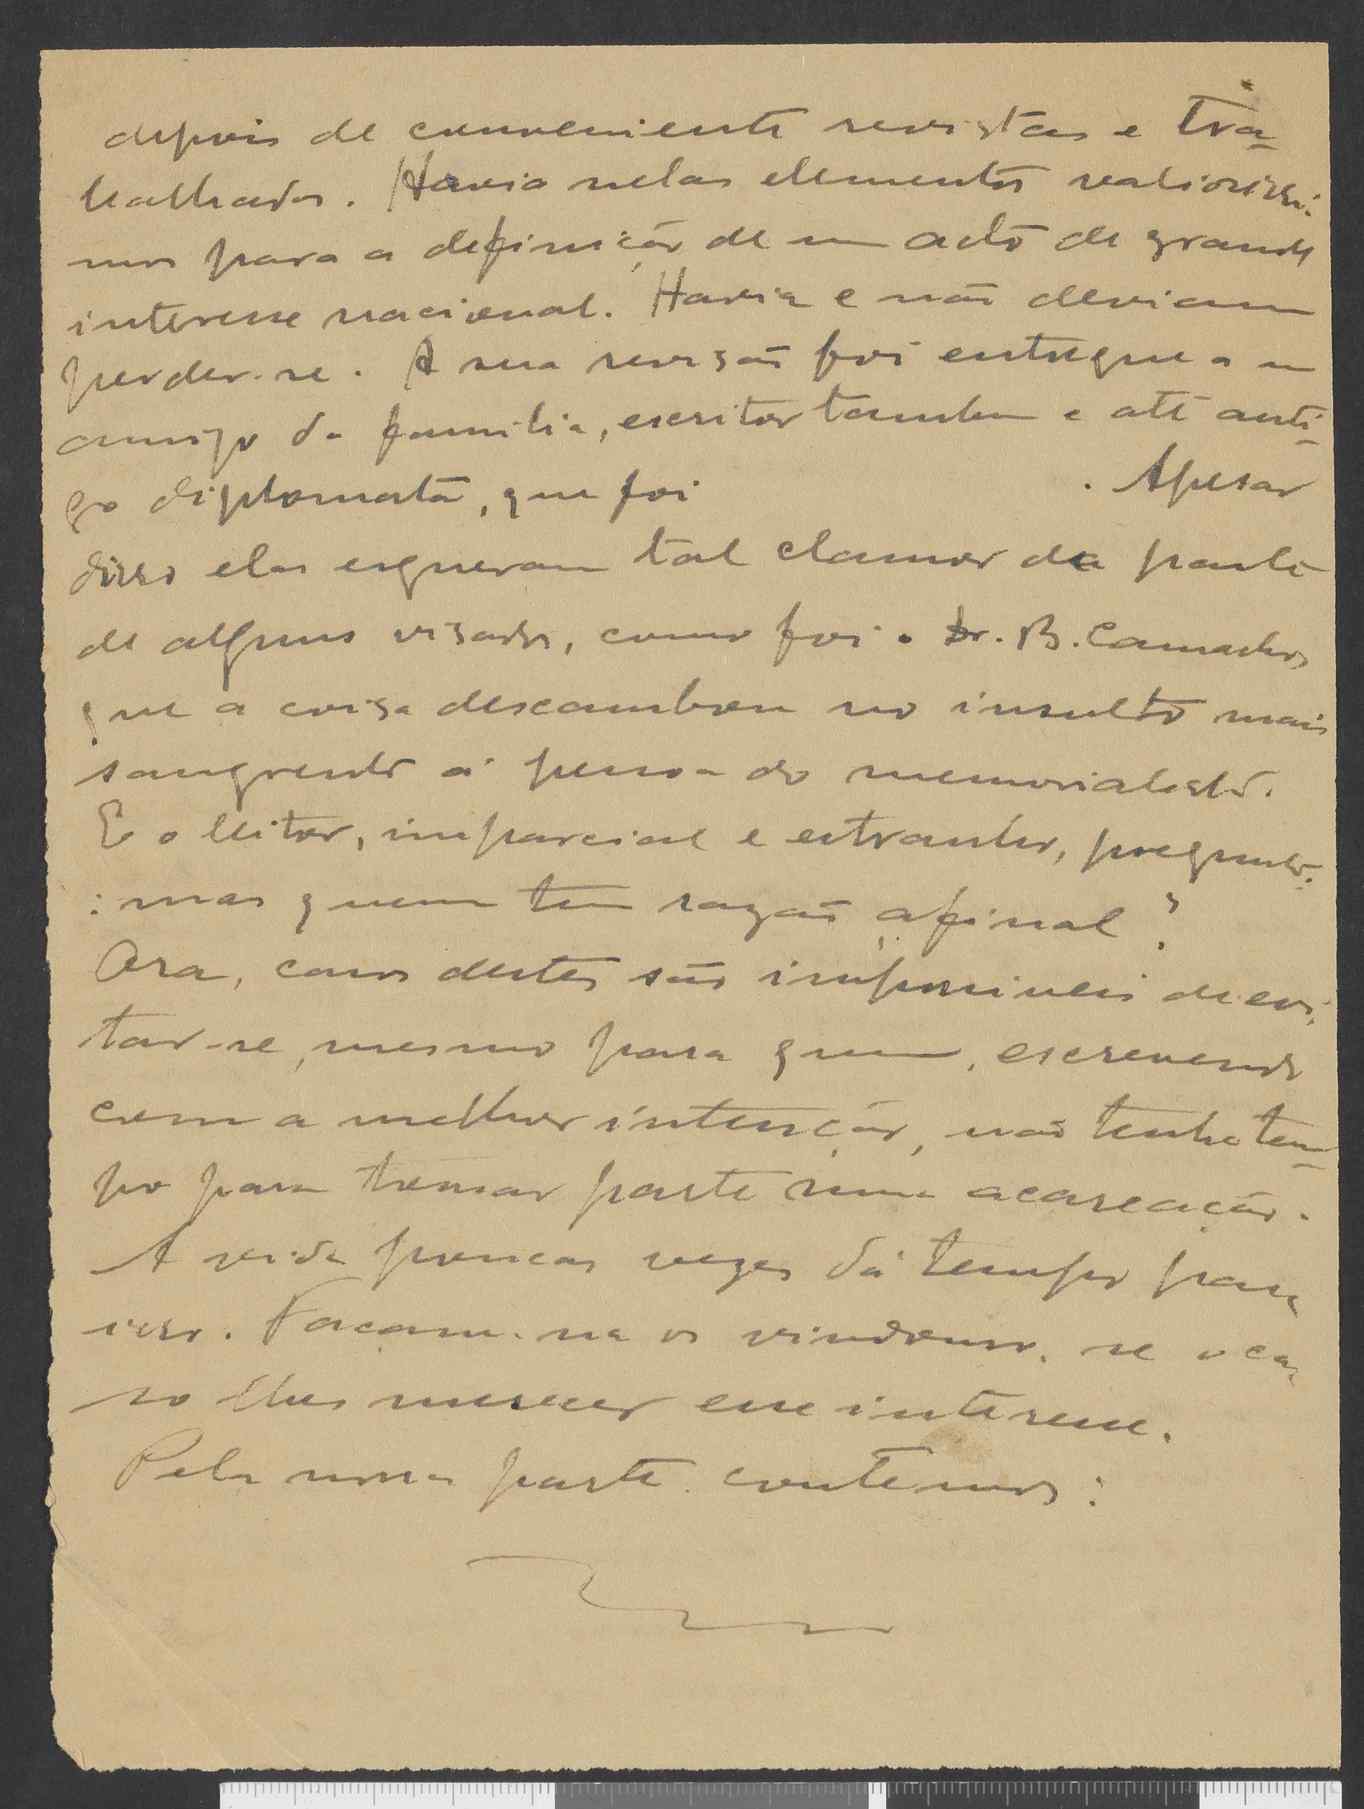 depois de convenientemente revistas e tra-
balhadas. Havia nelas elementos valiosissi-
mos para a definição de um acto de grande
interesse nacional. Havia e não deviam
perder-se. A sua revisão foi entregue a um
amigo da familia, escritor tambem e até anti-
go diplomata, que foi . Apesar
disso elas ergueram tal clamor da parte
de alguns visados, como foi o Dr. B. Camacho,
que a coisa descambou no insulto mais
sangrento á pessoa do memorialista.
E o leitor, imparcial e estranho, pregunta-
: mas quem tem razão afinal?
Ora, casos destes são impossiveis de evi-
tar-se, mesmo para quem, escrevendo
com a melhor intenção, não tenha tem-
po para tomar parte numa acareação.
A vida poucas vezes dá tempo para
isso. Façam-na os vindouros, se o ca-
so lhes merecer esse interesse.
Pela nossa parte contemos: